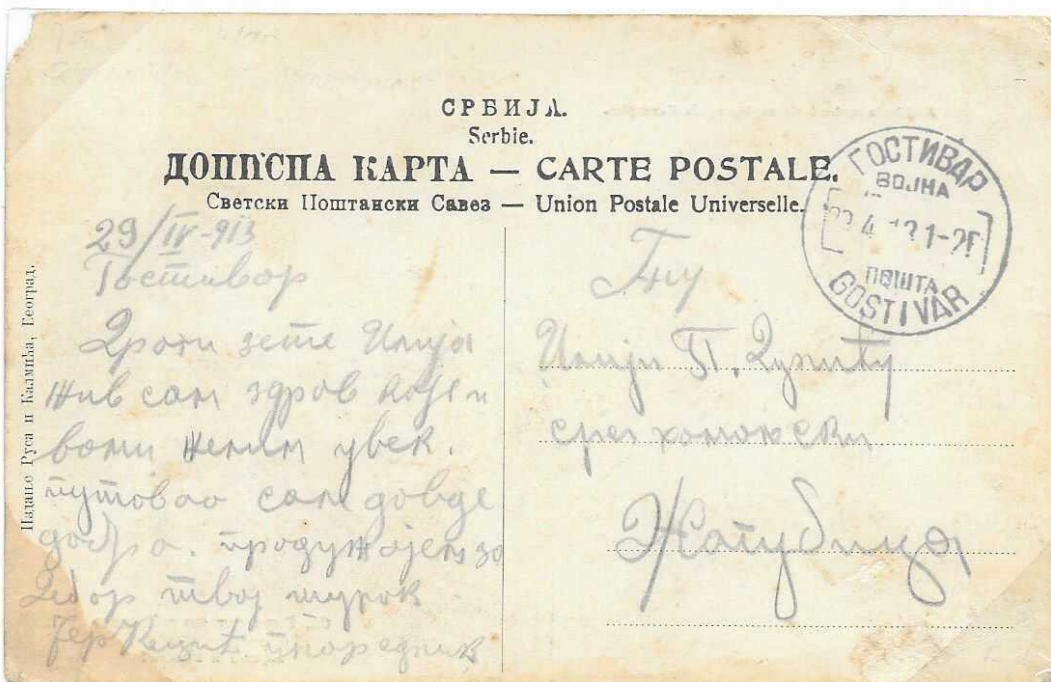 СРБИЈА.
Serbie.
ДОПИСНА КАРТА — CARTE POSTALE.
Светски Поштански Савез — Union Postale Universelle.
ГОСТИВАР
ВОЈНА
4 1-2
ПОШТА
GOSTIVAR
Издање Руса и Калмића, Београд.
29/IV-913
Гостивар
Драги зете Илија
жив сам здрав које и
вами желим увек.
путовао сам довде
добро. продужајем за
Дебар твој шурак
наредник
Гну
Илији П.
срез хомољски
Жагубица